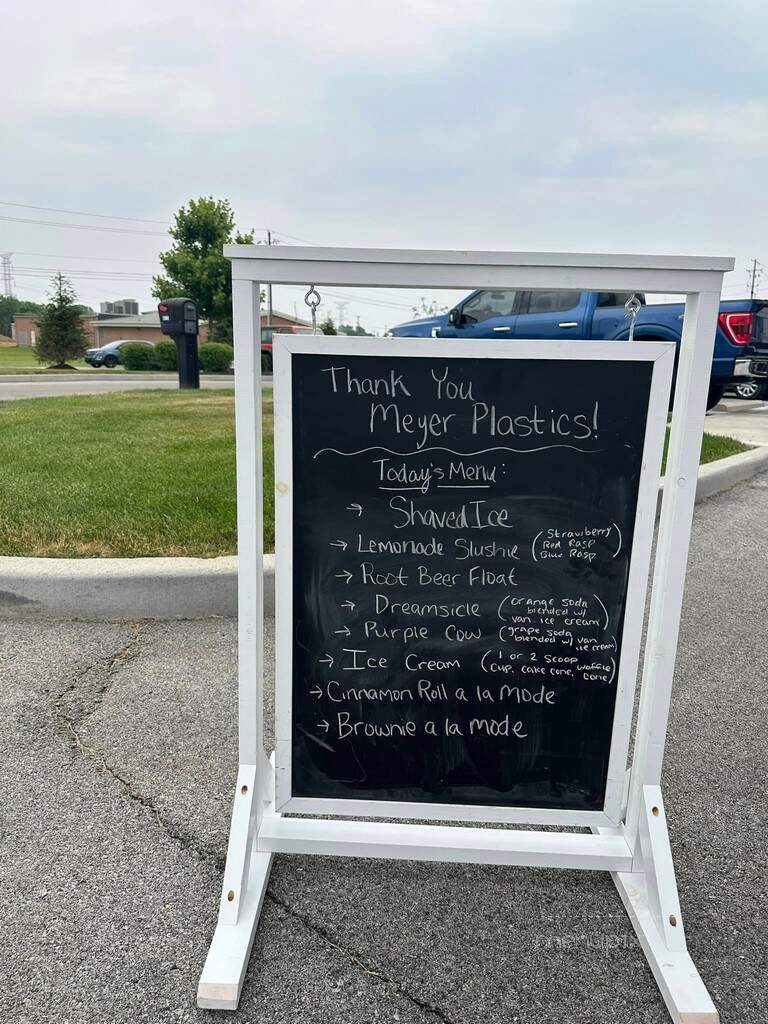 Thank You
Meyer Plastics!
Today's Menu:
→ Shaved Ice
→ Lemonade Slushie (Strawberry
Red Rasp
Blue Rasp)
→ Root Beer Float
→ Dreamsicle (orange soda
blended w/
van. ice cream)
→ Purple Cow (grape soda
blended w/ van
ice cream)
→ Ice Cream (1 or 2 scoop
cup, cake cone, waffle
cone)
→ Cinnamon Roll a la mode
→ Brownie a la mode